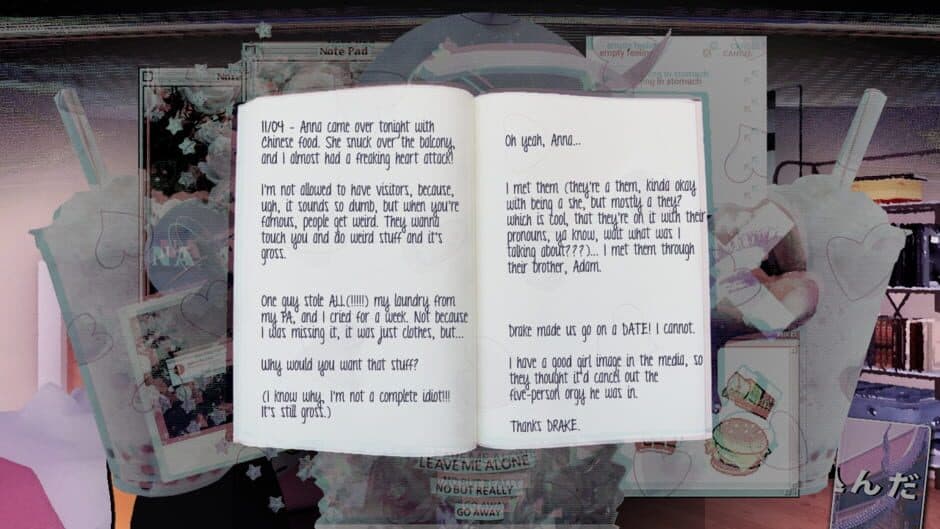 Note Pad
empty feeling
in stomach
11/04 - Anna came over tonight with
Chinese food. She snuck over the balcony,
and I almost had a freaking heart attack!
I'm not allowed to have visitors, because,
ugh, it sounds so dumb, but when you're
famous, people get weird. They wanna
touch you and do weird stuff and it's
gross.
One guy stole ALL(!!!!!) my laundry from
my PA, and I cried for a week. Not because
I was missing it, it was just clothes, but...
Why would you want that stuff?
(I know why, I'm not a complete idiot!!!
It's still gross.)
Oh yeah, Anna...
I met them (they're a them, kinda okay
with being a she, but mostly a they?
which is tool, that they're on it with their
pronouns, ya know, wait what was I
talking about???)... I met them through
their brother, Adam.
Drake made us go on a DATE! I cannot.
I have a good girl image in the media, so
they thought it'd cancel out the
five-person orgy he was in.
Thanks DRAKE.
LEAVE ME ALONE
NO BUT REALLY
GO AWAY
んだ